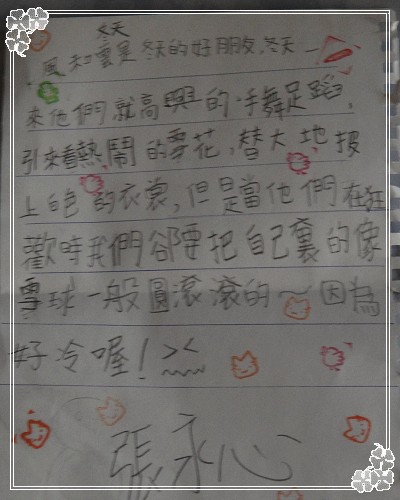 冬天
風和雲是冬天的好朋友,冬天一
來他們就高興的手舞足蹈,
引來看熱鬧的雪花,替大地披
上白色的衣裳,但是當他們在狂
歡時我們卻要把自己裹的像
雪球一般圓滾滾的~因為
好冷喔!><
張永心